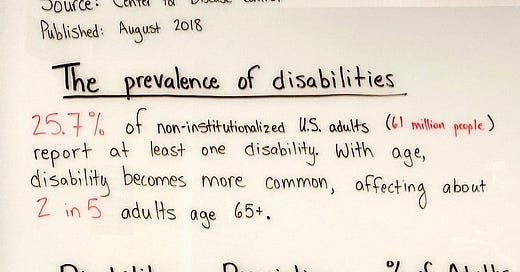 Source: Center for Disease Control
Published: August 2018
The prevalence of disabilities
25.7% of non-institutionalized U.S. adults (61 million people)
report at least one disability. With age,
disability becomes more common, affecting about
2 in 5 adults age 65+.
% of Adults